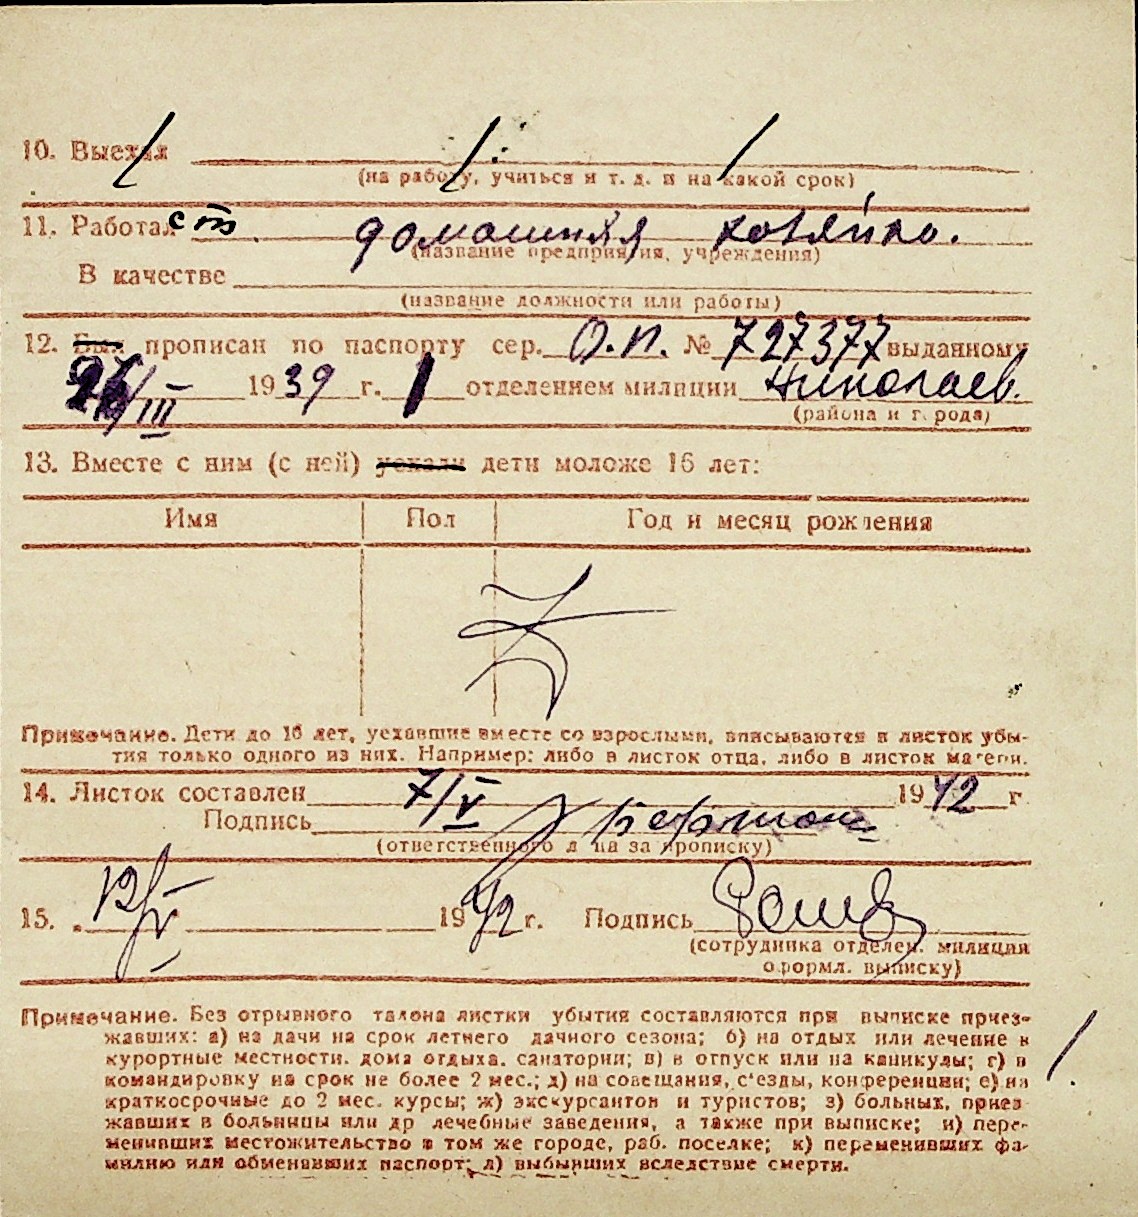 10. Выехал
(на работу, учиться и т. д. и на какой срок)
11. Работал домашняя хозяйка.
(название предприятия, учреждения)
В качестве
(название должности или работы)
12. Был прописан по паспорту сер. О.П. № 727377 выданному
III 1939 г. 1 отделением милиции Николаев.
(района и города)
13. Вместе с ним (с ней) уехали дети моложе 16 лет:
Имя Пол Год и месяц рождения
Примечание. Дети до 16 лет, уехавшие вместе со взрослыми, вписываются в листок убы-
тия только одного из них. Например: либо в листок отца, либо в листок матери.
14. Листок составлен 7/V 1942 г
Подпись
(ответственного л на за прописку)
15. 12/V 1942 г. Подпись
(сотрудника отделен. милиции
оформл. выписку)
Примечание. Без отрывного талона листки убытия составляются при выписке приез-
жавших: а) на дачи на срок летнего дачного сезона; б) на отдых или лечение в
курортные местности, дома отдыха, санатории; в) в отпуск или на каникулы; г) в
командировку на срок не более 2 мес.; д) на совещания, с'езды, конференции; е) на
краткосрочные до 2 мес. курсы; ж) экскурсантов и туристов; з) больных, приез
жавших в больницы или др лечебные заведения, а также при выписке; и) пере-
менивших местожительство в том же городе, раб. поселке; к) переменивших фа-
милию или обменявших паспорт; л) выбывших вследствие смерти.